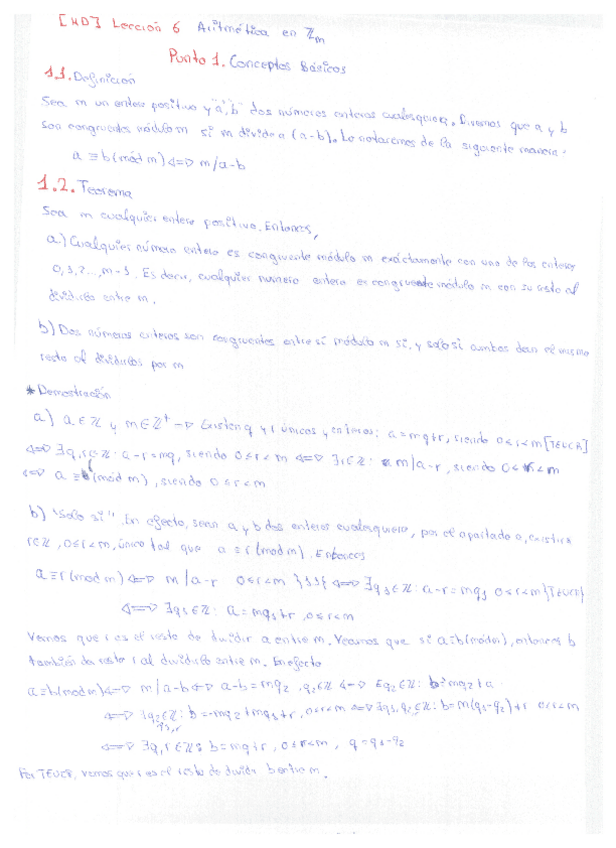 [MD] Lección 6 Aritmética en ℤm
Punto 1. Conceptos Básicos
1.1. Definición
Sea m un entero positivo y "a", "b" dos números enteros cualesquiera. Diremos que a y b
son congruentes módulo m si m divide a (a-b). Lo notaremos de la siguiente manera:
a ≡ b (mód m) ⇔ m/a-b
1.2. Teorema
Sea m cualquier entero positivo. Entonces,
a) Cualquier número entero es congruente módulo m exactamente con uno de los enteros
0,1,2...,m-1. Es decir, cualquier número entero es congruente módulo m con su resto al
dividirlo entre m.
b) Dos números enteros son congruentes entre sí módulo m si, y solo si ambos dan el mismo
resto al dividirlos por m
* Demostración
a) a∈ℤ y m∈ℤ⁺ → Existen q y r únicos y enteros: a=mq+r, siendo 0≤r<m [TEUCR]
⇔ ∃q,r∈ℤ: a-r=mq, siendo 0≤r<m ⇔ ∃r∈ℤ: m/a-r, siendo 0≤r<m
⇔ a ≡ (mód m), siendo 0≤r<m
b) "Solo si". En efecto, sean a y b dos enteros cualesquiera, por el apartado a, existirá
r∈ℤ, 0≤r<m, único tal que a≡r (mod m). Entonces
a≡r (mod m) ⇔ m/a-r 0≤r<m ⇔ ∃q₁∈ℤ: a-r=mq₁ 0≤r<m [TEUCR]
⇔ ∃q₁∈ℤ: a=mq₁+r, 0≤r<m
Vemos que r es el resto de dividir a entre m. Veamos que si a≡b (mód m), entonces b
también da resto r al dividirlo entre m. En efecto
a≡b (mod m) ⇔ m/a-b ⇔ a-b=mq₂, q₂∈ℤ ⇔ ∃q₂∈ℤ: b=-mq₂+a
⇔ ∃q₂∈ℤ: b=-mq₂+mq₁+r, 0≤r<m ⇔ ∃q₁,q₂∈ℤ: b=m(q₁-q₂)+r 0≤r<m
q₁,r
⇔ ∃q,r∈ℤ: b=mq+r, 0≤r<m, q=q₁-q₂
Por TEUCR, vemos que r es el resto de dividir b entre m.